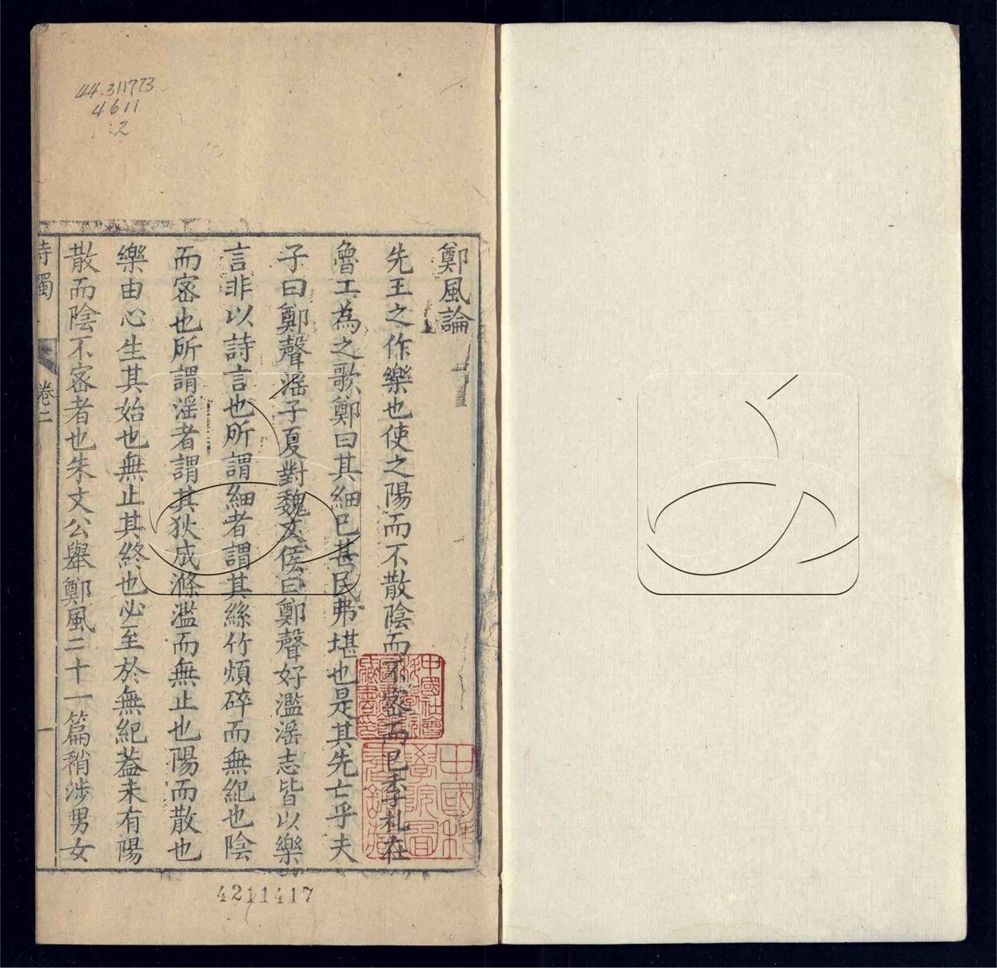 44.311773
4611
:2
鄭風論
先王之作樂也使之陽而不散陰而不密而已季札在
魯工為之歌鄭曰其細已甚民弗堪也是其先亡乎夫
子曰鄭聲滛子夏對魏文侯曰鄭聲好濫滛志皆以樂
言非以詩言也所謂細者謂其絲竹煩碎而無紀也陰
而宻也所謂滛者謂其狄成滌濫而無止也陽而散也
樂由心生其始也無止其終也必至於無紀葢未有陽
散而陰不宻者也朱文公舉鄭風二十一篇稍涉男女
卷二
一
4211417